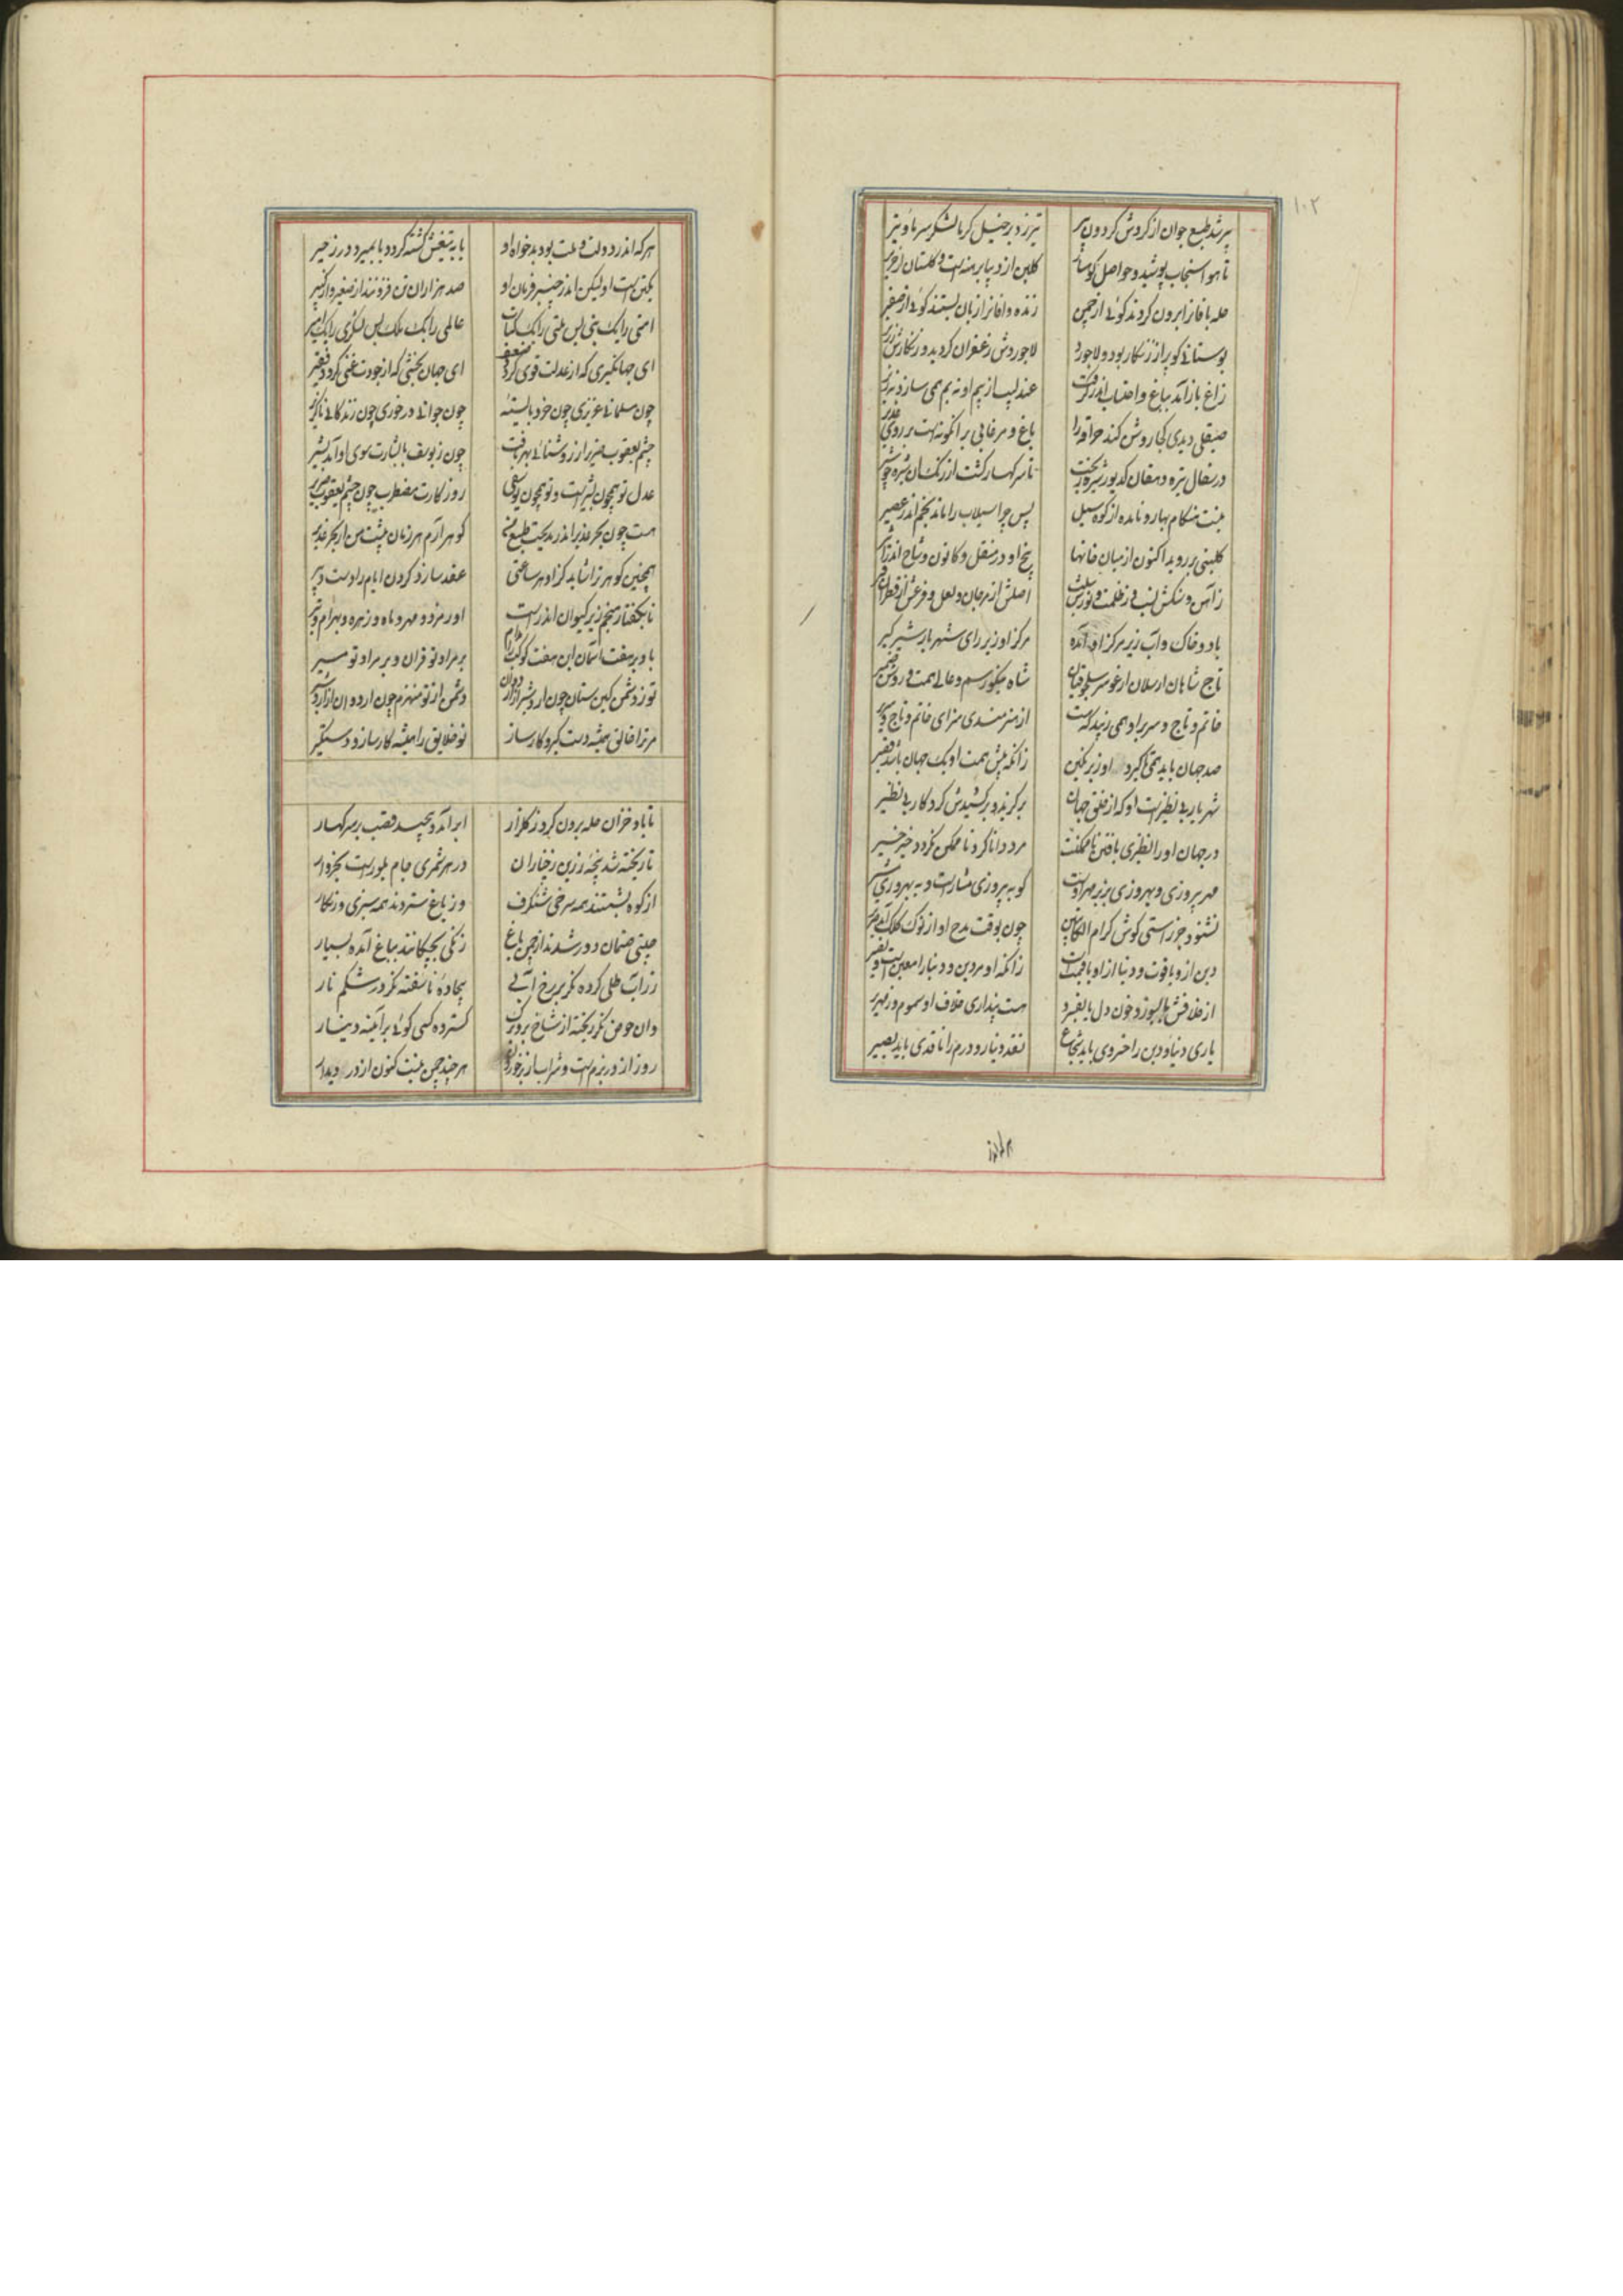 ۱۰۲
پیر شد طبع جوان از کردش کردون پیر تیر زد بر خیل کرما لشکر سرما و تیر
تا هوا سنجاب پوشید و حواصل کوهسار کلبن از دیبا برهنه است و کلستان از حریر
حله بافان را برون کردند کوئی از چمن زند وافان را زبان بستند کوئی از صفیر
بوستانی کو پر از زنکار بود و لاجورد لاجوردش زعفران کردید و زنکارش زریر
زاغ باز آمد بباغ و احتساب اندر کرفت عندلیب از بیم او نه بم همی سازد نه زیر
صیقلی دیدی کجا روشن کند حراقه را باغ و مرغابی بر انکونه است بر روی غدیر
در سفال تیره دهقان کدیور شیره ریخت تا سر کهسار کشت از رنک آن شیره چو شیر
نیست هنکام بهار و نامده از کوه سیل پس چرا سیلاب را ماند بخم اندر عصیر
کلبنی بر روید اکنون از میان خانها بیخ او در منقل و کانون و شاخ اندر اثیر
ز آهن و سنکش نسب وز ظلمت و نورش سلب اصلش از مرجان و لعل و فرعش از قطران و قیر
باد و خاک و آب زیر مرکز او آمده مرکز او زیر رای شهریار شیرکیر
تاج شاهان ارسلان ارغو سر سلجوقیان شاه نیکو رسم و عالی همت و روشن ضمیر
خاتم و تاج و سریر او همی زیبد که هست از هنرمندی سزای خاتم و تاج و سریر
صد جهان باید همی تا کیرد او زیر نکین زانکه پیش همت او یک جهان باشد حقیر
شهریار بی نظیر است او که از خلق جهان بر کزید و بر کشیدش کردکار بی نظیر
در جهان او را نظیری یافتن ناممکنست مرد دانا کرد ناممکن نکردد خیر خیر
مهر پیروزی و بهروزی بزیر مهر اوست کو به پیروزی مشار است و به بهروزی مشیر
نشنود جز راستی کوش کرام الکاتبین چون بوقت مدح او از نوک کلک آید صریر
دین از و با قوت و دنیا از او با قیمت است زانکه او مر دین و دنیا را معین است و نصیر
از خلافش یا بسوزد خون دل یا بفسرد هست پنداری خلاف او سموم و زمهریر
یاری دنیا و دین را خسروی باید شجاع نقد دینار و درم را ناقدی باید بصیر
هر که اندر دولت و ملت بود بدخواه او یا به تیغش کشته کردد یا بمیرد در زحیر
یکتن است او لیکن اندر چنبر فرمان او صد هزاران تن فزونند از صغیر و از کبیر
امتی را یک نبی بس ملتی را یک کتاب عالمی را یک ملک بس لشکری را یک امیر
ای جهانکیری که از عدلت قوی کردد ضعیف ای جهان بخشی که از جودت غنی کردد فقیر
چون مسلمانی عزیزی چون خرد بایسته چون جوانی در خوری چون زندکانی ناکزیر
چشم یعقوب ضریر از روشنائی بهر یافت چون ز یوسف با بشارت سوی او آمد بشیر
عدل تو همچون بشیر است و تو همچون یوسفی روزکارت مضطرب چون چشم یعقوب ضریر
هست چون بحر غدیر اندر مدیحت طبع من کوهر آرم هر زمان پیشت من از بحر غدیر
همچنین کوهر تراشاید کز او هر ساعتی عقد سازد کردن ایام را دست دبیر
تا بکفتار منجم زیر کیوان اندر است اورمزد و مهر و ماه و زهره و بهرام و تیر
باد بر هفت آسمان این هفت کوکب را مدام بر مراد تو قران و بر مراد تو مسیر
تو ز دشمن کین ستان چون اردشیر از اردوان دشمن از تو منهزم چون اردوان از اردشیر
مر ترا خالق همیشه دست کیر و کارساز تو خلایق را همیشه کارساز و دستکیر
تا باد خزان حله برون کرد ز کلزار ابر آمد و پیچید قصب بر سر کهسار
تا ریخته شد پنجه زرین ز چناران در هر شمری جام بلور است بخروار
از کوه بشستند همه سرخی شنکرف وز باغ ستردند همه سبزی زنکار
چینی صنمان دور شدند از چمن باغ زنکی بچکانند بباغ آمده بسیار
زر آب طلی کرده نکر بر رخ آبی بیجاده ناسفته نکر در شکم نار
وان حوض نکر ریخته از شاخ برو برک کسترده کسی کوئی بر آینه دینار
روز از در بزم است و شراب از در خوردن هر چند چمن نیست کنون از در دیدار